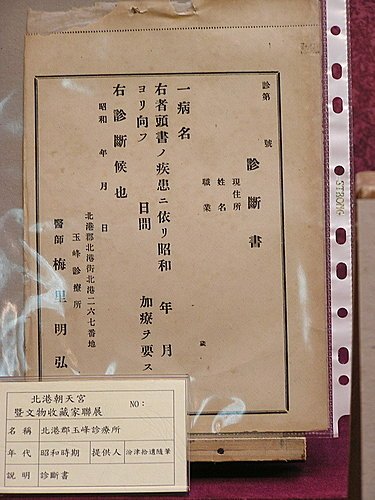 診第 號
診斷書
現住所
姓名
職業
歲
一病名
右者頭書ノ疾患ニ依リ昭和 年 月
ヨリ向フ 日間 加療ヲ要ス
右診斷候也
昭和 年 月 日
北港郡北港街北港二六七番地
玉峰診療所
醫師 梅里明弘
STRONG
北港朝天宮
暨文物收藏家聯展 NO：
名稱 北港郡玉峰診療所
年代 昭和時期 提供人 汾津拾遺隨筆
說明 診斷書